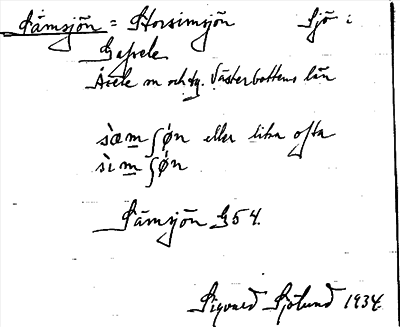 Sämsjön = Storsimsjön Sjö i
Gafsele
Åsele sn och tg. Västerbottens län
sæmʃøn eller lika ofta
simʃøn
Sämsjön G54.
Sigvard Sjölund 1934